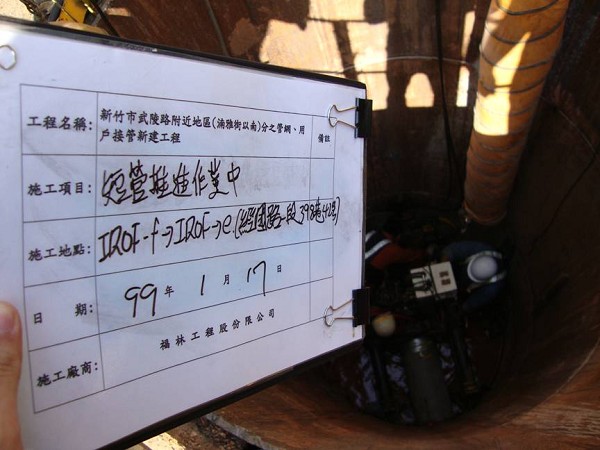 工程名稱: 新竹市武陵路附近地區(湳雅街以南)分之管網、用
戶接管新建工程
備註
施工項目: 短管推進作業中
施工地點: IROF-f→IROF→e.(經國路一段398巷42號)
日 期: 99年 1月 17日
施工廠商: 福林工程股份限公司